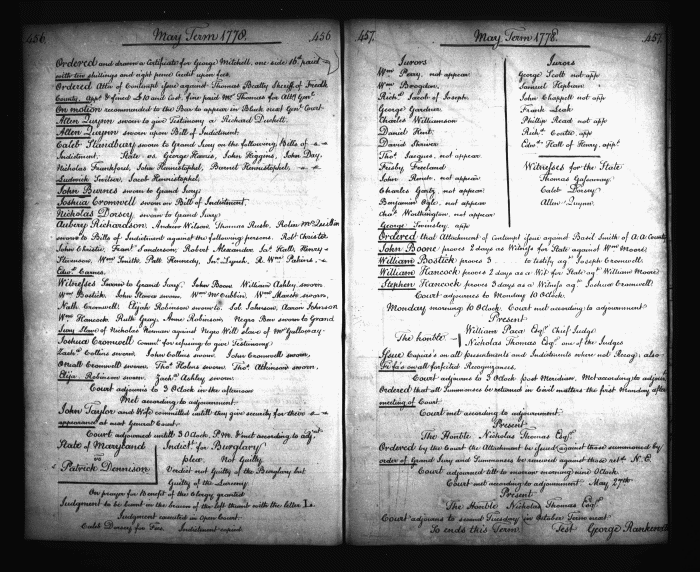 456. May Term 1778. 456
Ordered and drawn a Certificate for George Mitchell, one side 16th paid
with ten shillings and eight pence Credit upon fees.
Ordered Attn of Contempt issue against Thomas Beatty Sheriff of Fredk
County, Appd & fined £10 and Cost, fine paid Mr Thomas for Atty Genl.
On motion recommended to the Bar to appear in Black next Genl Court
Allen Quynn sworn to give Testimony
Allen Quynn sworn upon Bill of Indictment.
Caleb Standbury sworn to Grand Jury on the following Bills of
Indictment. State vs. George Harris, John Higgins, John Day,
Nicholas Frankford, John
John Burnes sworn to Grand Jury
Joshua Cromwell sworn on Bill of Indictment.
Nicholas Dorsey, sworn to Grand Jury
Aubrey Richardson, Andrew Wilson, Thomas
sworn to Bills of Indictment against the following persons. Robt Christie
John Christie, Robert Alexander, Jas. Hall, Henry
Stevenson, Wm Smith, Patk Kennedy, Jas. Lynch, R. Wm Perkins,
Edwd Carnes.
Witnesses Sworn to Grand Jury, John Boone William Ashley sworn
Wm Bostick. John Stones sworn. Wm McCubbin Wm Marsh sworn,
Nath. Cromwell Elijah Robinson sworn to. Sol. Johnson, Aaron Johnson
Wm Hancock. Ruth Gray, Anne Robinson, Negro Row sworn to Grand
Jury Slave of Nicholas Norman against Negro Will slave of Mr Galloway.
Joshua Cromwell Commd for refusing to give Testimony
Zachh Collins sworn John Collins sworn John Cromwell sworn,
Thos Robins sworn Thos Atkinson sworn,
Elija Robinson sworn. Zachh Ashley sworn
Court adjourns to 3 O'clock in the afternoon
Met according to adjournment.
John Taylor and Wife committed untill they give security for there
appearance at next General Court.
Court adjourned untill 3 O'clock, P.M. & met according to adjmt
State of Maryland Indictt for Burglary
vs plea Not Guilty
Patrick Dennison Verdict not Guilty of the Burglary but
Guilty of the Larceny.
On prayer for Benefit of the Clergy granted
Judgment to be burnt in the brawn of the left thumb with the letter L.
Judgment executed in Open Court.
Caleb Dorsey for Fees. Indictment
457. May Term 1778. 457
Jurors
Wm Perry, not appear
Wm Brogden,
Richd Jacob of Joseph.
George Gardner,
Charles Williamson
Daniel Hunt,
David Shriver
Thos Jacques, not appear
Frisby Freeland
John not appear
Charles Garty, not appear
Benjamin Ogle, not appear
Chas Worthington, not appear
George Townsley, app
Jurors
George Scott not app
Samuel Hepburn
John Chappell not app
Frank Leak
Phillip Read not app
Richd Coates app
Edwd Hall of Henry, app
Witnesses for the State
Thomas Gassaway
Caleb Dorsey
Allen Quynn.
Ordered that Attachment of Contempt issue against Basil Smith of A.A. County
John Boone proves 2 days as Witness for State against Wm Moore
William Bostick proves 3 to testify agt Joseph Cromwell
William Hancock proves 2 days as a Wit for State agt William Moore
Stephen Hancock proves 3 days as a Witness agt Joshua Cromwell
Court adjourns to Monday 10 O'Clock.
Monday, morning 10 O'Clock Court met according to adjournment
Present
The honble William Paca Esqr Chief Judge
Nicholas Thomas Esqr one of the Judges
Issue Capias's on all presentments and Indictments where not Recog. also
Fi fa's on all forfeited Recognizances.
Court adjourned to 3 O'clock post Meridiem. Met according to adjmt
Ordered that all Summons be returned in Civil matters the first Monday after
meeting of Court
Court met according to adjournment.
Present
The Honble Nicholas Thomas Esqr.
Ordered by the Court the Attachment be issued against those summoned by
order of Grand Jury and Summons be renewed against those retd N.E.
Court adjourned till to morrow morning nine O'Clock.
Court met according to adjournment. May 27th
Present
The Honble Nicholas Thomas Esqr
Court adjourns to second Tuesday in October Term next
To ends this Term. Test George Ranken